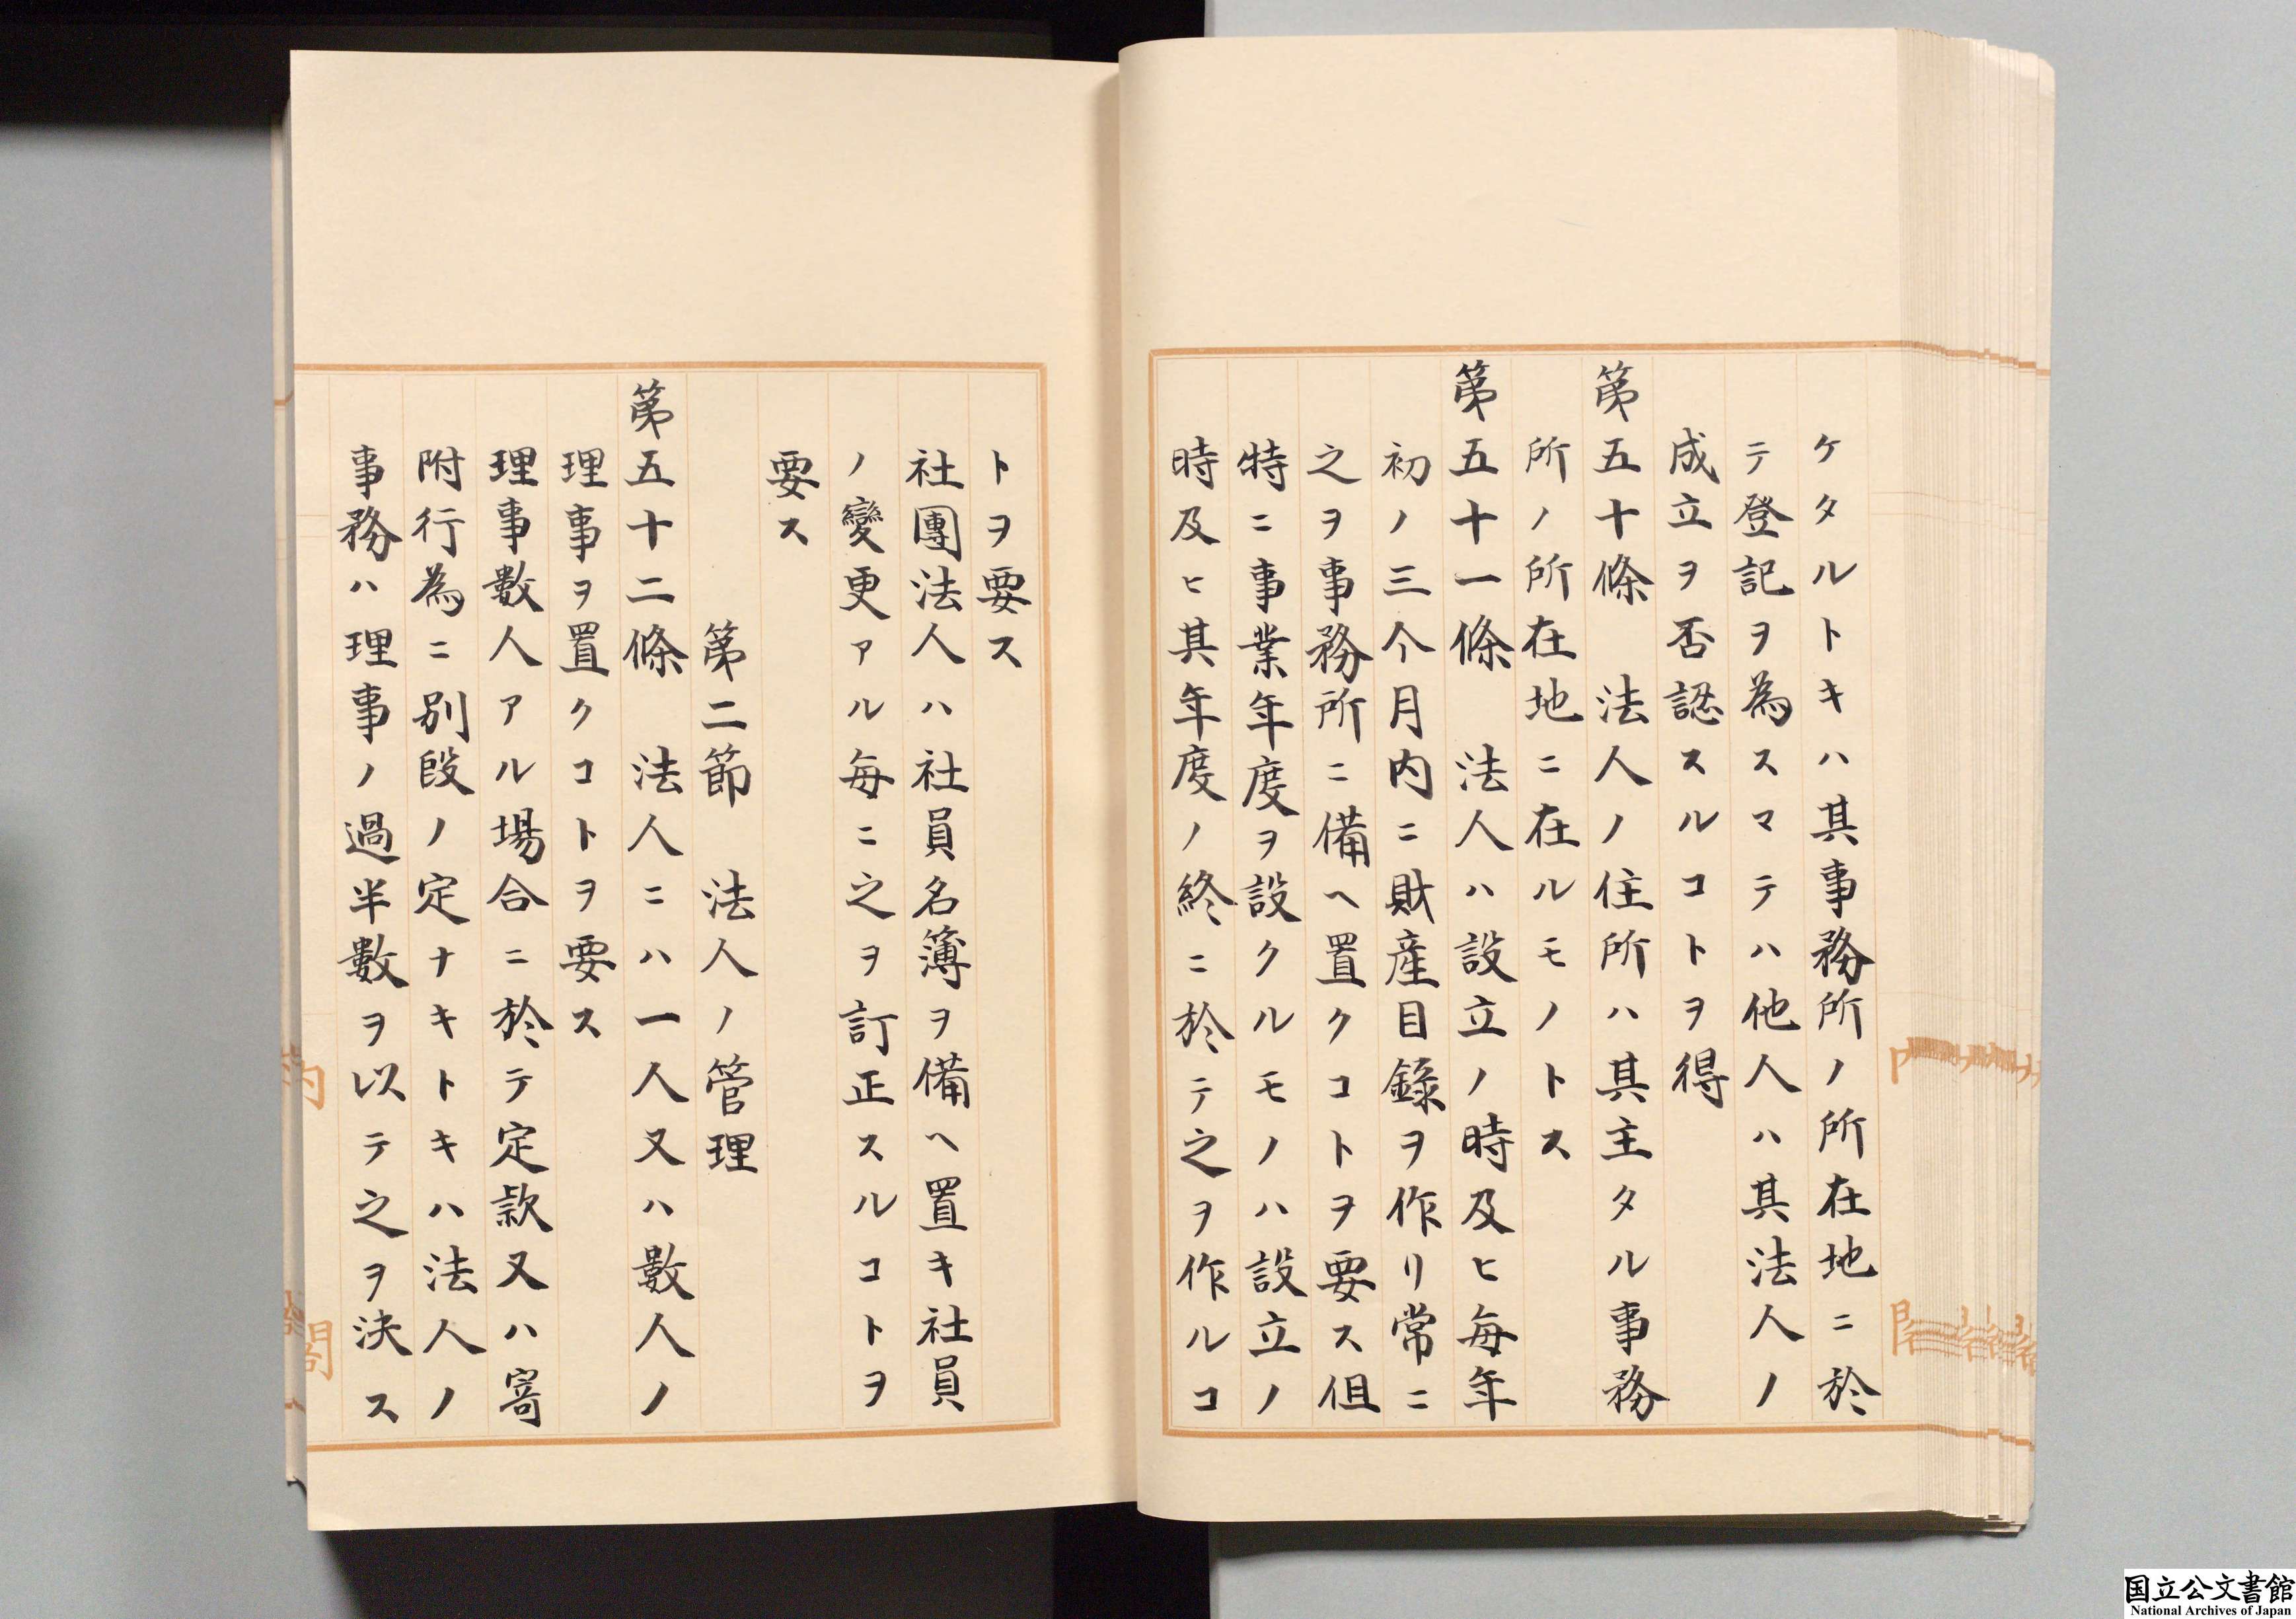 ケタルトキハ其事務所ノ所在地ニ於
テ登記ヲ為スマテハ他人ハ其法人ノ
成立ヲ否認スルコトヲ得
第五十條　法人ノ住所ハ其主タル事務
所ノ所在地ニ在ルモノトス
第五十一條　法人ハ設立ノ時及ヒ毎年
初ノ三个月内ニ財産目錄ヲ作リ常ニ
之ヲ事務所ニ備ヘ置クコトヲ要ス但
特ニ事業年度ヲ設クルモノハ設立ノ
時及ヒ其年度ノ終ニ於テ之ヲ作ルコ
トヲ要ス
社團法人ハ社員名簿ヲ備ヘ置キ社員
ノ變更アル毎ニ之ヲ訂正スルコトヲ
要ス
第二節　法人ノ管理
第五十二條　法人ニハ一人又ハ數人ノ
理事ヲ置クコトヲ要ス
理事數人アル場合ニ於テ定款又ハ寄
附行為ニ別段ノ定ナキトキハ法人ノ
事務ハ理事ノ過半數ヲ以テ之ヲ決ス
国立公文書館
National Archives of Japan